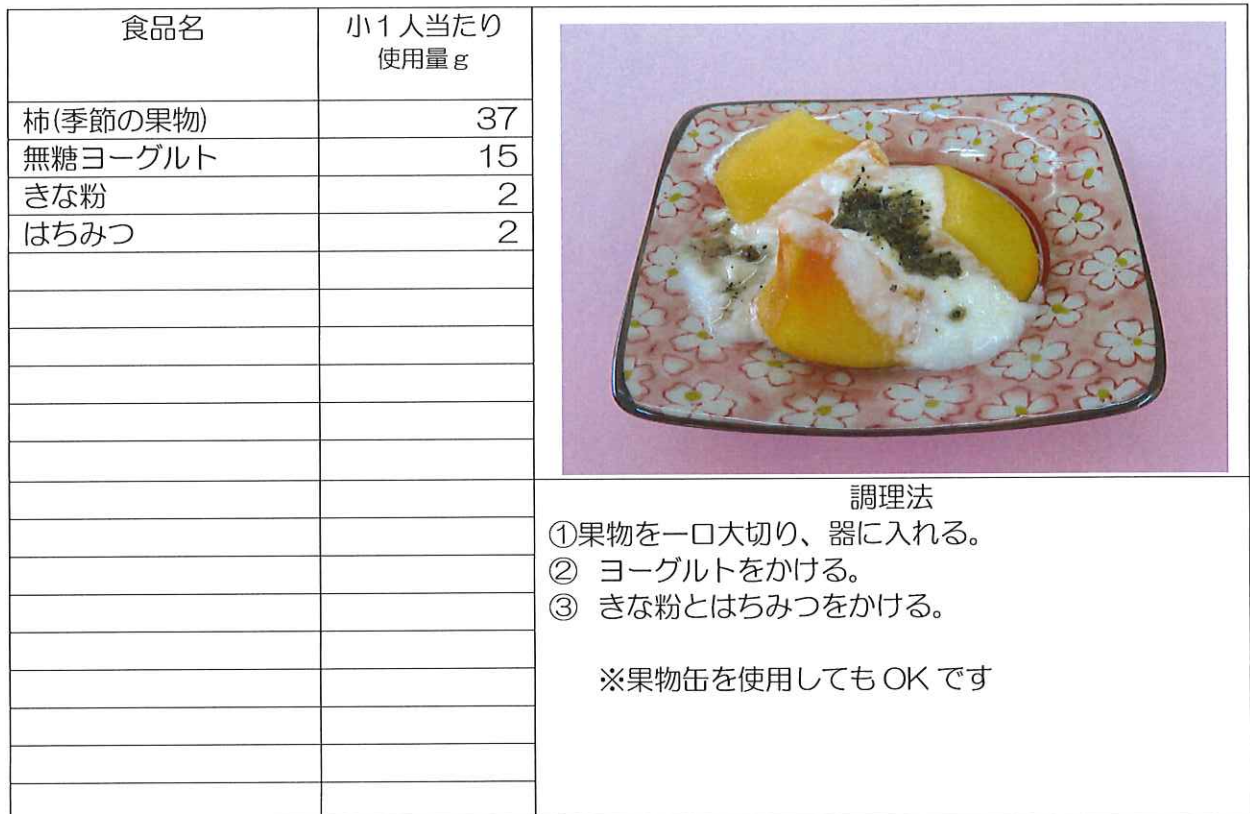 食品名 小１人当たり
使用量ｇ
柿(季節の果物) 37
無糖ヨーグルト 15
きな粉 2
はちみつ 2
調理法
①果物を一口大切り、器に入れる。
② ヨーグルトをかける。
③ きな粉とはちみつをかける。
※果物缶を使用してもOKです